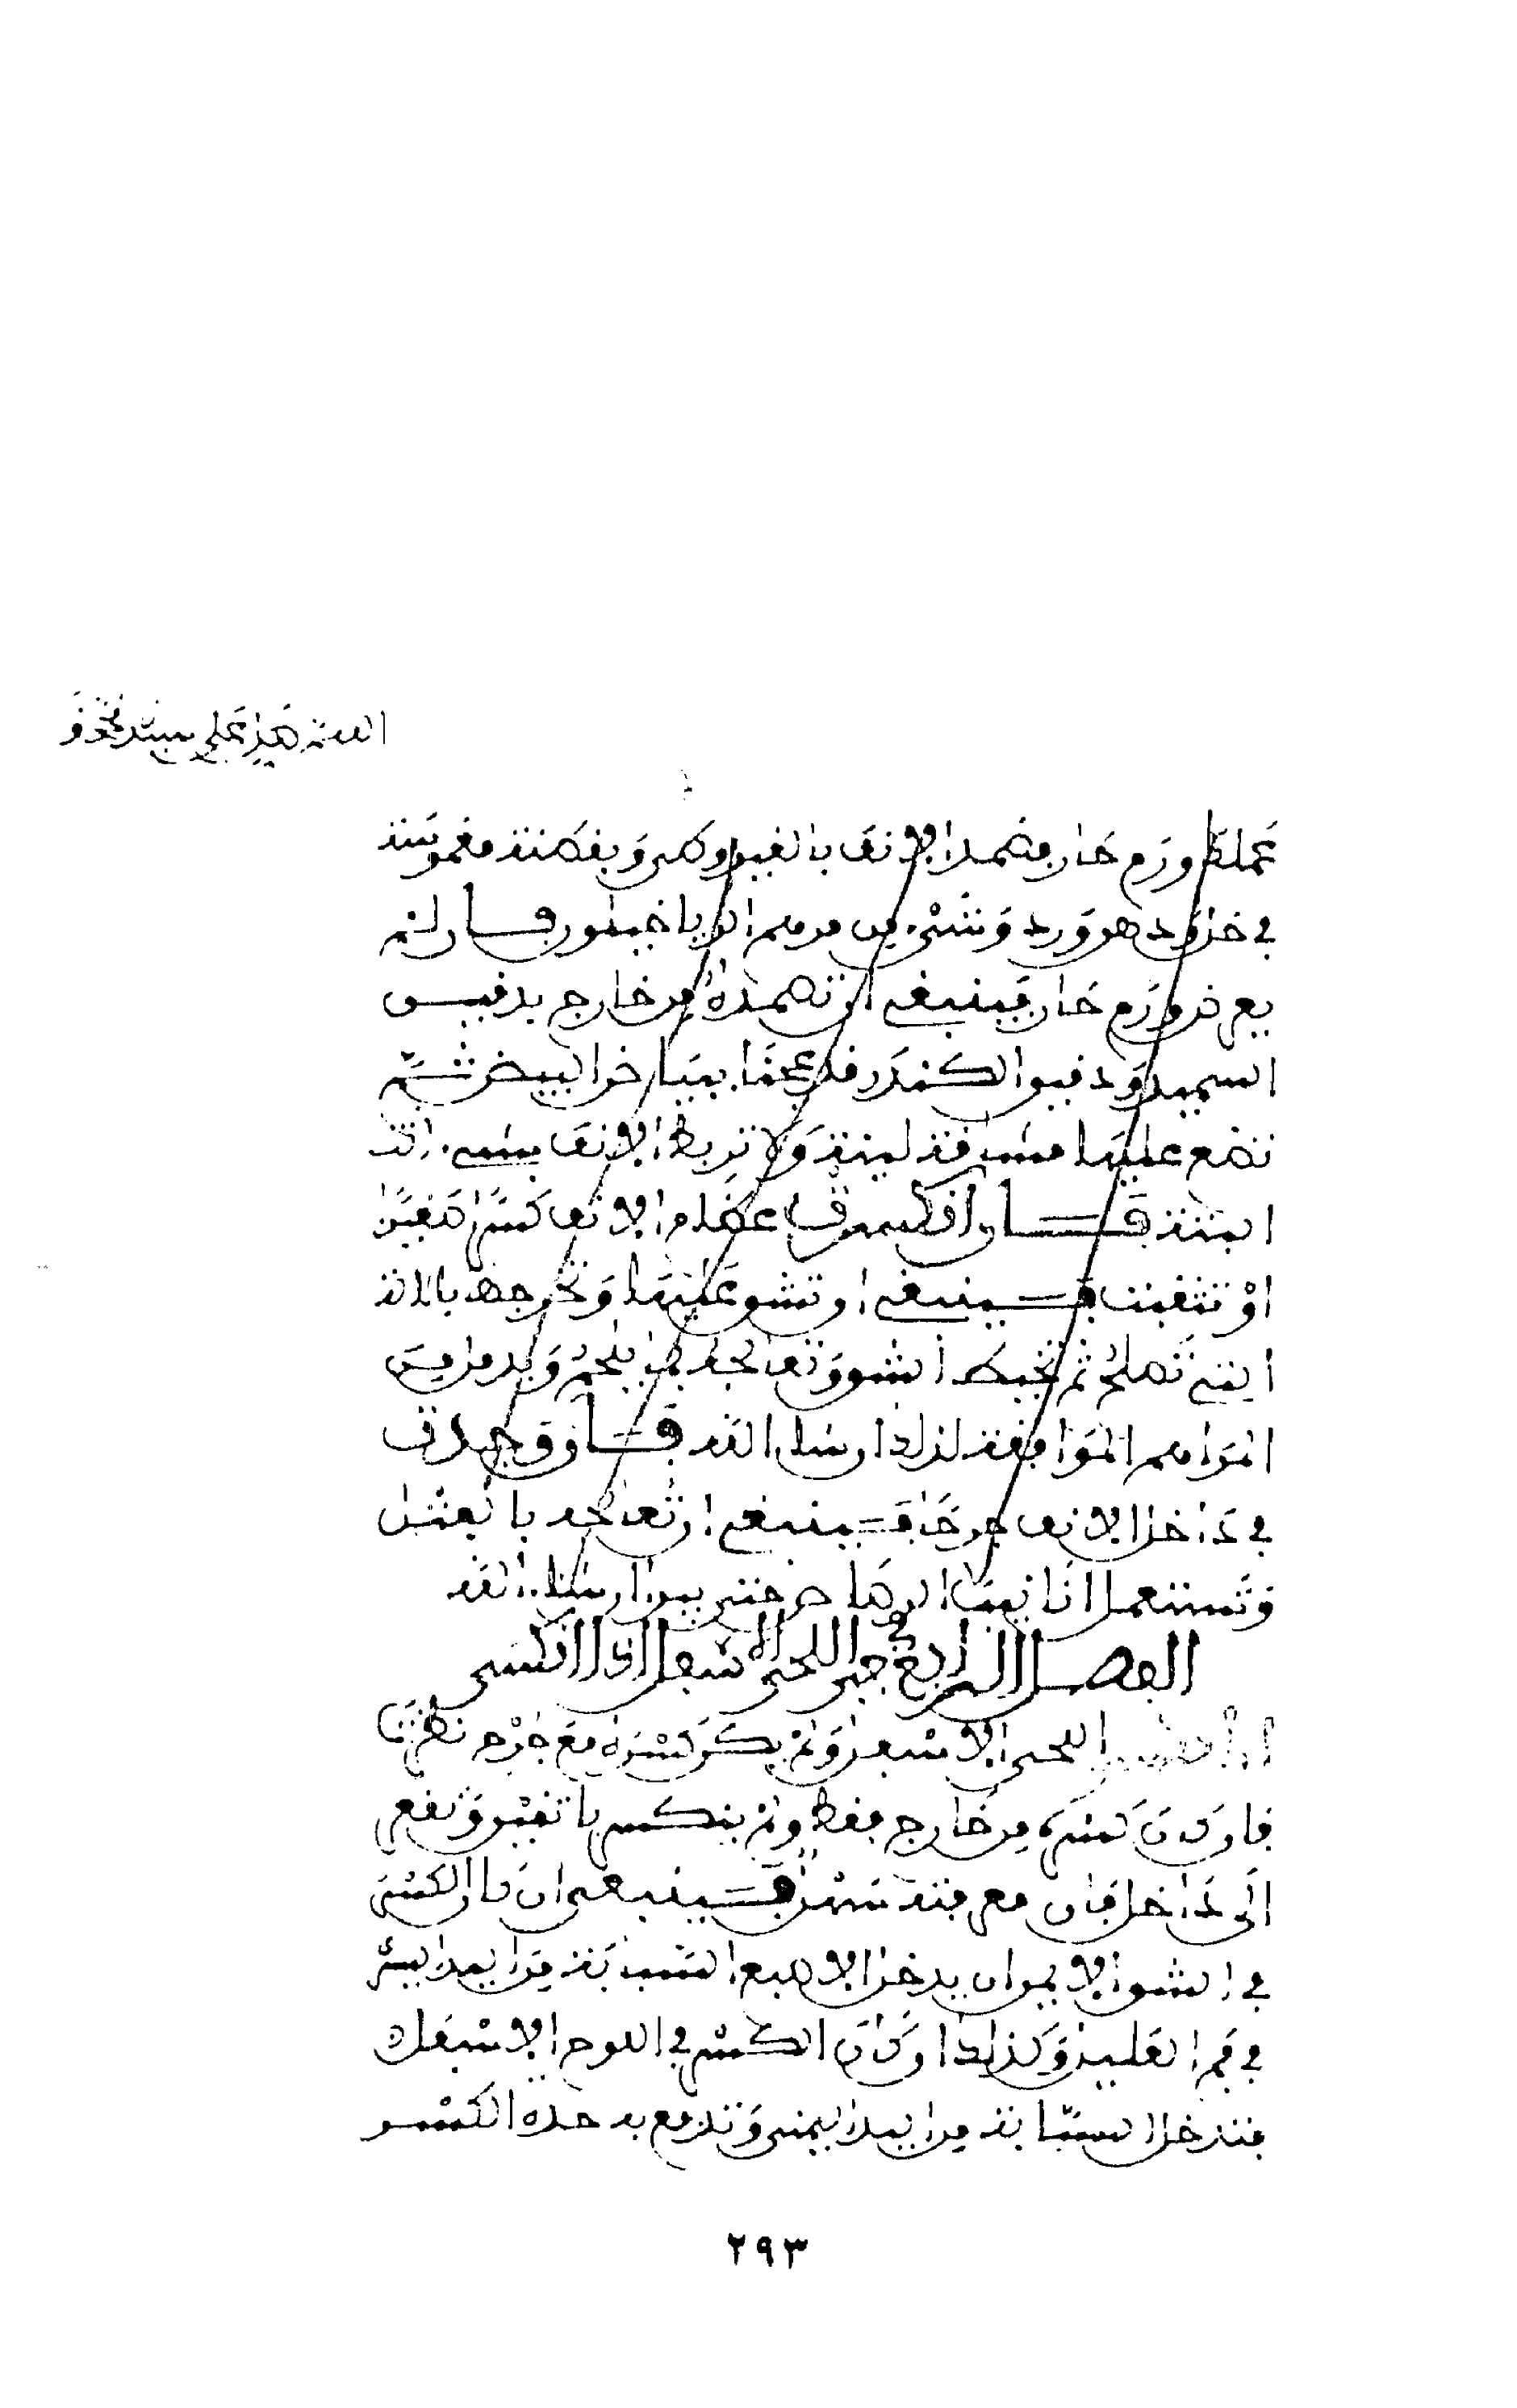 اللهم صل على سيدنا محمد و
عملك ورم حار فضمد الانف بالقيروطي وبقطنة مغموسة
في خل ودهن ورد وشيء من مرهم الدياخيلون فان لم
يعرض ورم حار فينبغي ان تضمده من خارج بدقيق
السميد ودقيق الكندر قد عجنا ببياض البيض ثم
تضع عليها مشاقة لينة ولا تربط الانف بشيء
البتة فان انكسرت عظام الانف كسرا صغيرا
او تفتتت فينبغي ان تشق عليها وتخرجها بالالة
التي تصلح ثم تخيط الشق وتعالجه بما يلحم ويدمل من
المراهم الموافقة لذلك ان شاء الله فان وجدت
في داخل الانف جرحا فينبغي ان تعالجه بالفتل
وتستعمل انابيب الرصاص حتى يبرا ان شاء الله
الفصل الرابع في جبر اللحي الاسفل اذا انكسر
اذا انكسر اللحي الاسفل ولم يكن كسره مع جرح نظرت
فان كان كسره من خارج فقط ولم ينكسر باثنين وتقعر
الى داخل فان معرفته تسهل فينبغي ان كان الكسر
في الشق الايمن ان يدخل الاصبع السبابة من اليد اليسرى
في فم العليل وكذلك ان كان الكسر في اللوح الاسفل
فتدخل السبابة من اليد اليمنى وتدفع به حدبة الكسر
٢٩٣